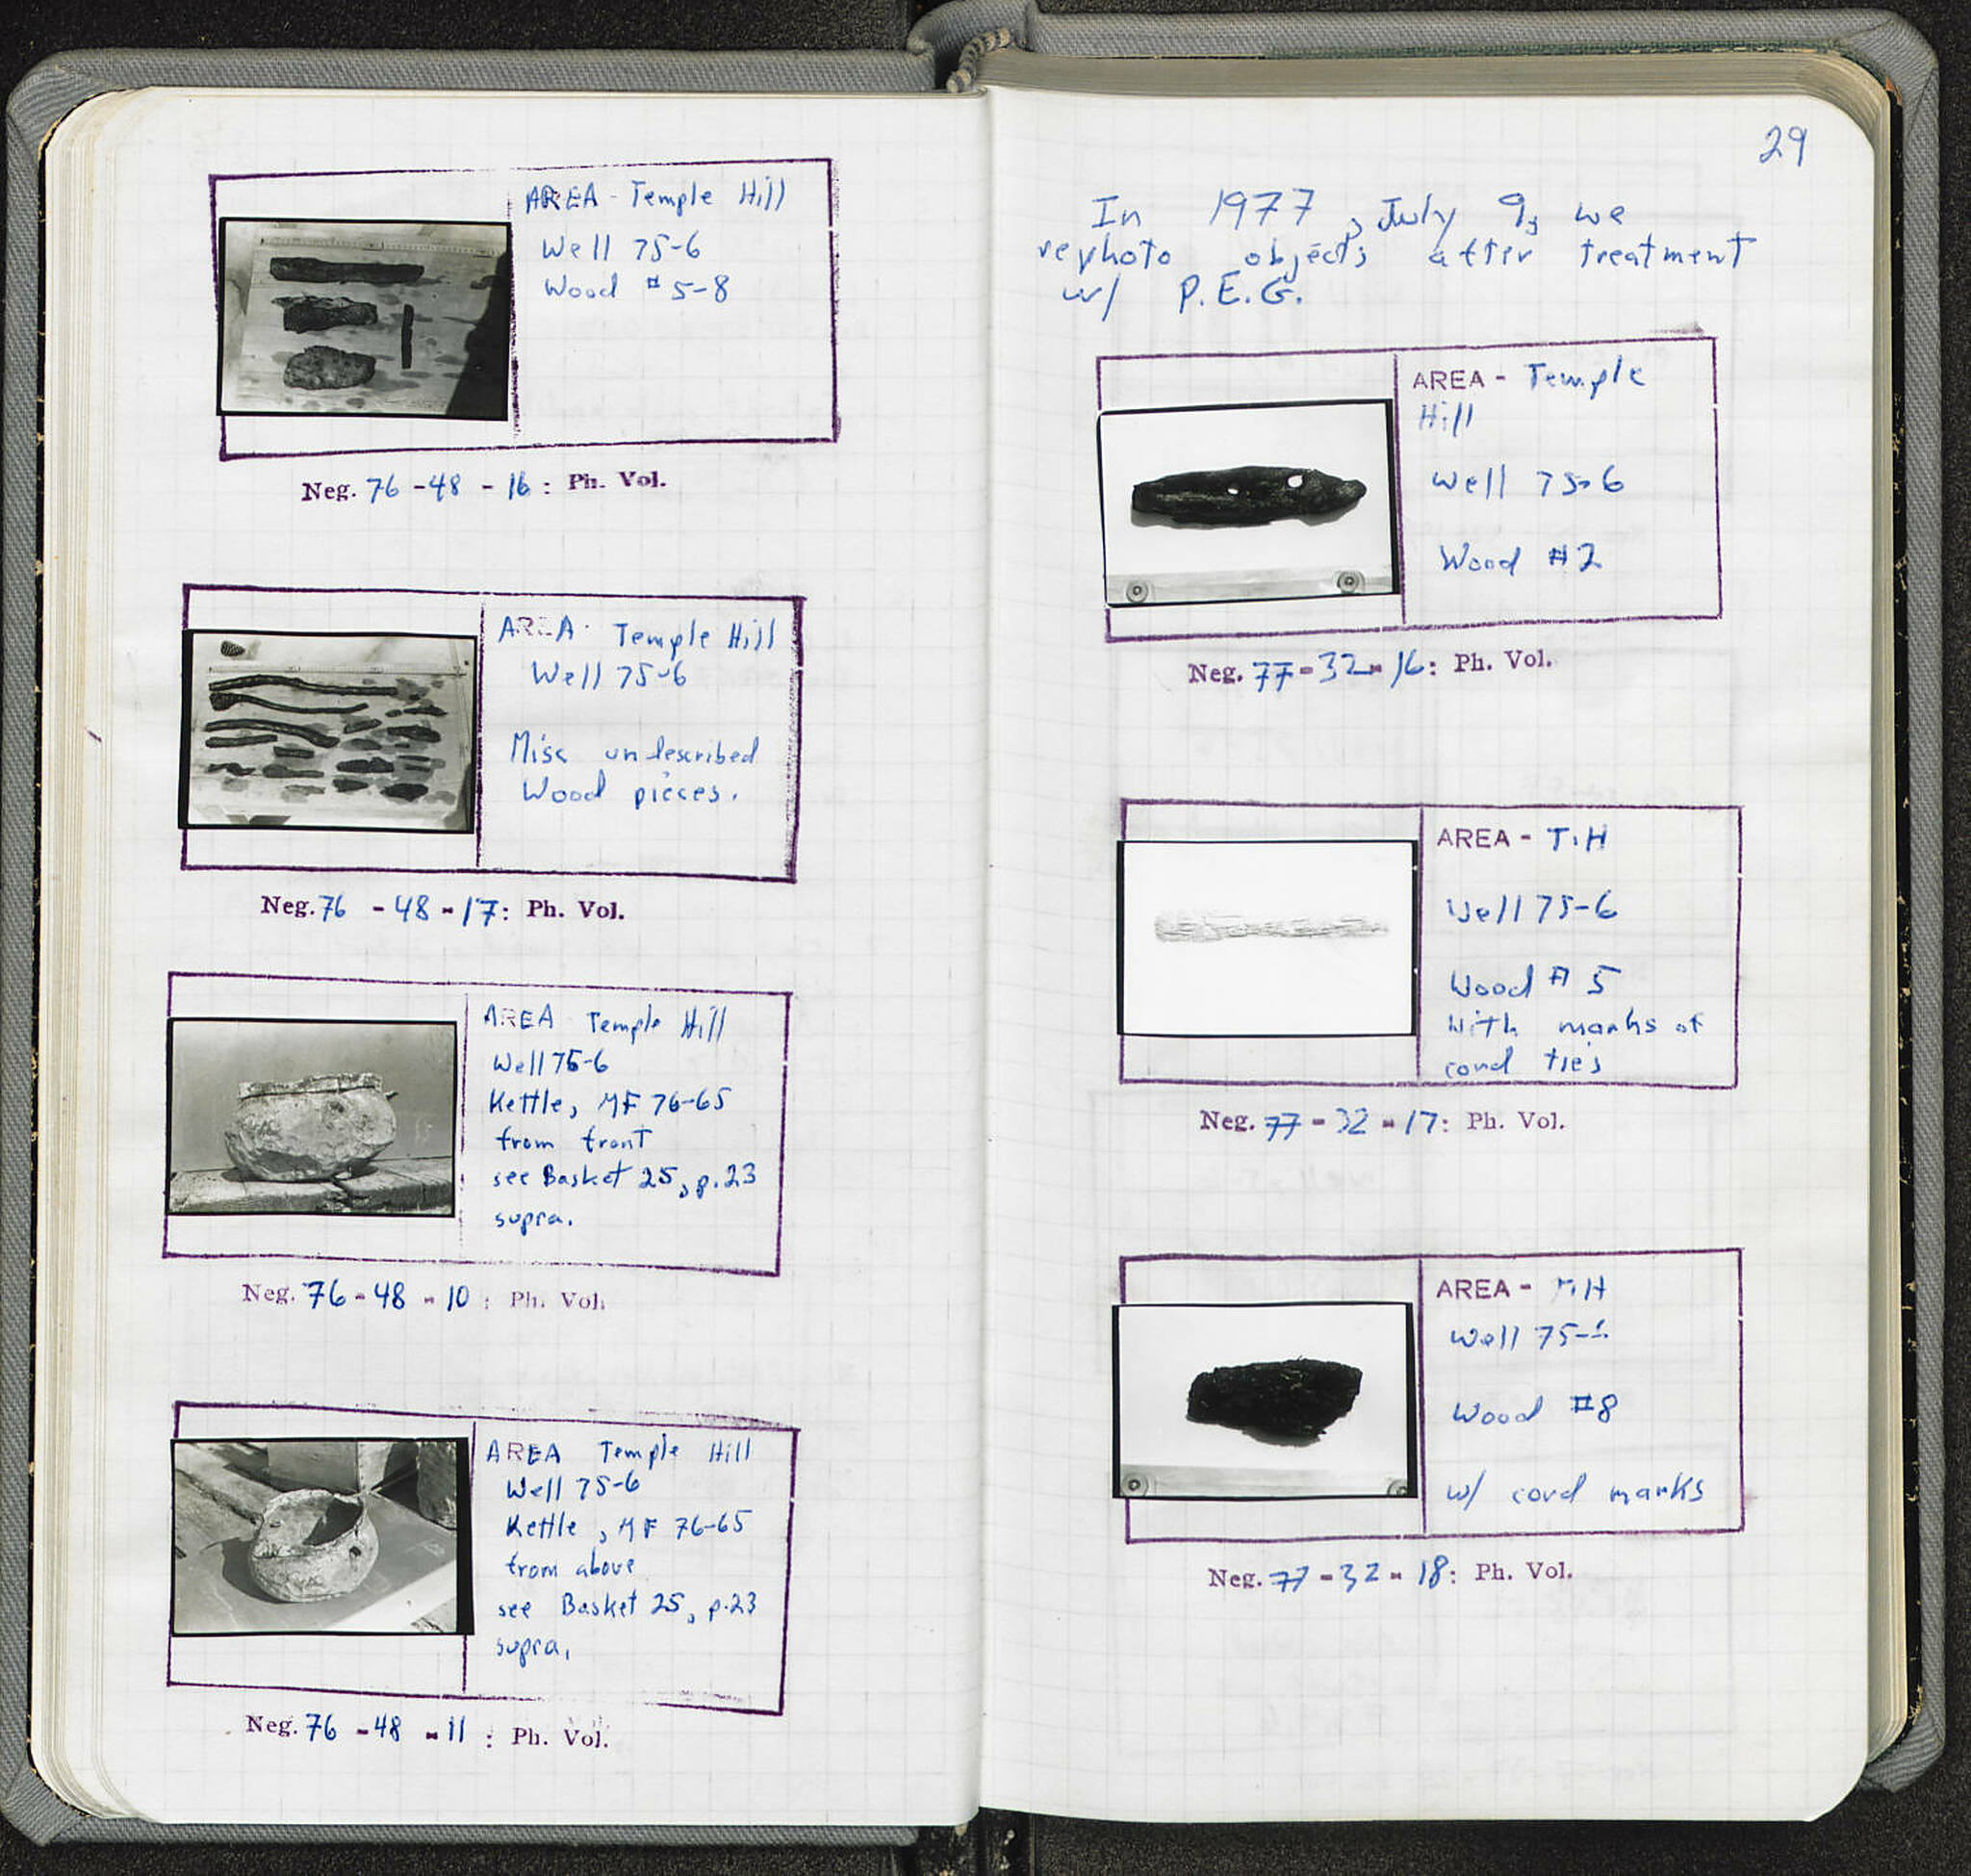 AREA - Temple Hill
Well 75-6
Wood # 5-8
Neg. 76 - 48 - 16 : Ph. Vol.
AREA - Temple Hill
Well 75-6
Misc undescribed
Wood pieces.
Neg. 76 - 48 - 17 : Ph. Vol.
AREA Temple Hill
Well 75-6
Kettle, MF 76-65
from front
see Basket 25, p.23
supra.
Neg. 76 - 48 - 10 : Ph. Vol.
AREA Temple Hill
Well 75-6
Kettle, MF 76-65
from above
see Basket 25, p.23
supra.
Neg. 76 - 48 - 11 : Ph. Vol.
29
In 1977, July 9, we
rephoto objects after treatment
w/ P.E.G.
AREA - Temple
Hill
Well 75-6
Wood #2
Neg. 77 - 32 - 16 : Ph. Vol.
AREA - T.H
Well 75-6
Wood # 5
With marks of
cord ties
Neg. 77 - 32 - 17 : Ph. Vol.
AREA - T.H
Well 75-6
Wood #8
w/ cord marks
Neg. 77 - 32 - 18 : Ph. Vol.